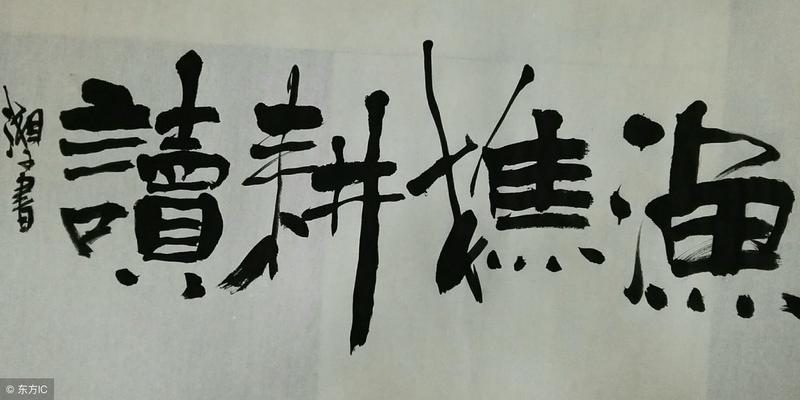 漁樵耕讀
湘子書
© 东方IC